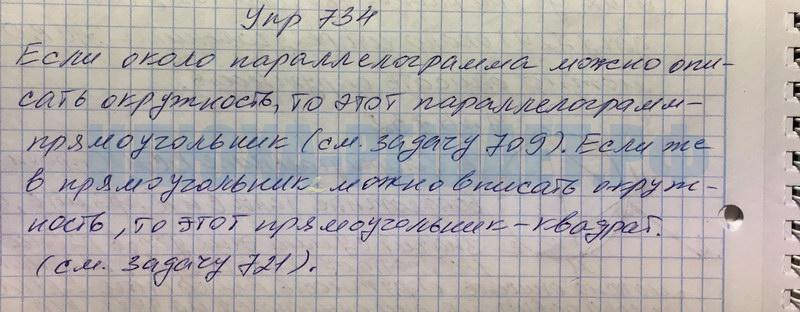 Упр 734
Если около параллелограмма можно опи-
сать окружность, то этот параллелограмм-
прямоугольник (см. задачу 709). Если же
в прямоугольник можно вписать окруж-
ность, то этот прямоугольник-квадрат.
(см. задачу 721).